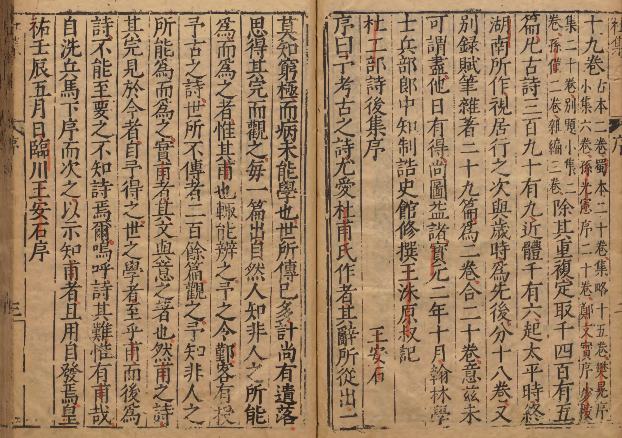 十九卷
古本二卷蜀本二十卷集略十五卷樊晃序
小集六卷孫光憲序二十卷鄭文寳序少陵
集二十卷別題小集二
卷孫僅一卷雜編三卷
除其重複定取千四百有五
篇凡古詩三百九十有九近體千有六起太平時終
湖南所作視居行之次與歲時爲先後分十八卷又
別録賦筆雜著二十九篇爲二卷合二十卷意茲未
可謂盡他日有得尚圖益諸寳元二年十月翰林學
士兵部郎中知制誥史館修撰王洙原叔記
杜工部詩後集序
王安石
序曰予考古之詩尤愛杜甫氏作者其辭所從出一
莫知窮極而病未能學也世所傳已多計尚有遺落
思得其完而觀之毎一篇出自然人知非人之所能
爲而爲之者惟其甫也輒能辨之予之令鄞客有授
予古之詩世所不傳者二百餘篇觀之予知非人之
所能爲而爲之實甫者其文與意之著也然甫之詩
其完見於今者自予得之世之學者至乎甫而後爲
詩不能至要之不知詩焉爾嗚呼詩其難惟有甫哉
自洗兵馬下序而次之以示知甫者且用自發焉皇
祐壬辰五月日臨川王安石序